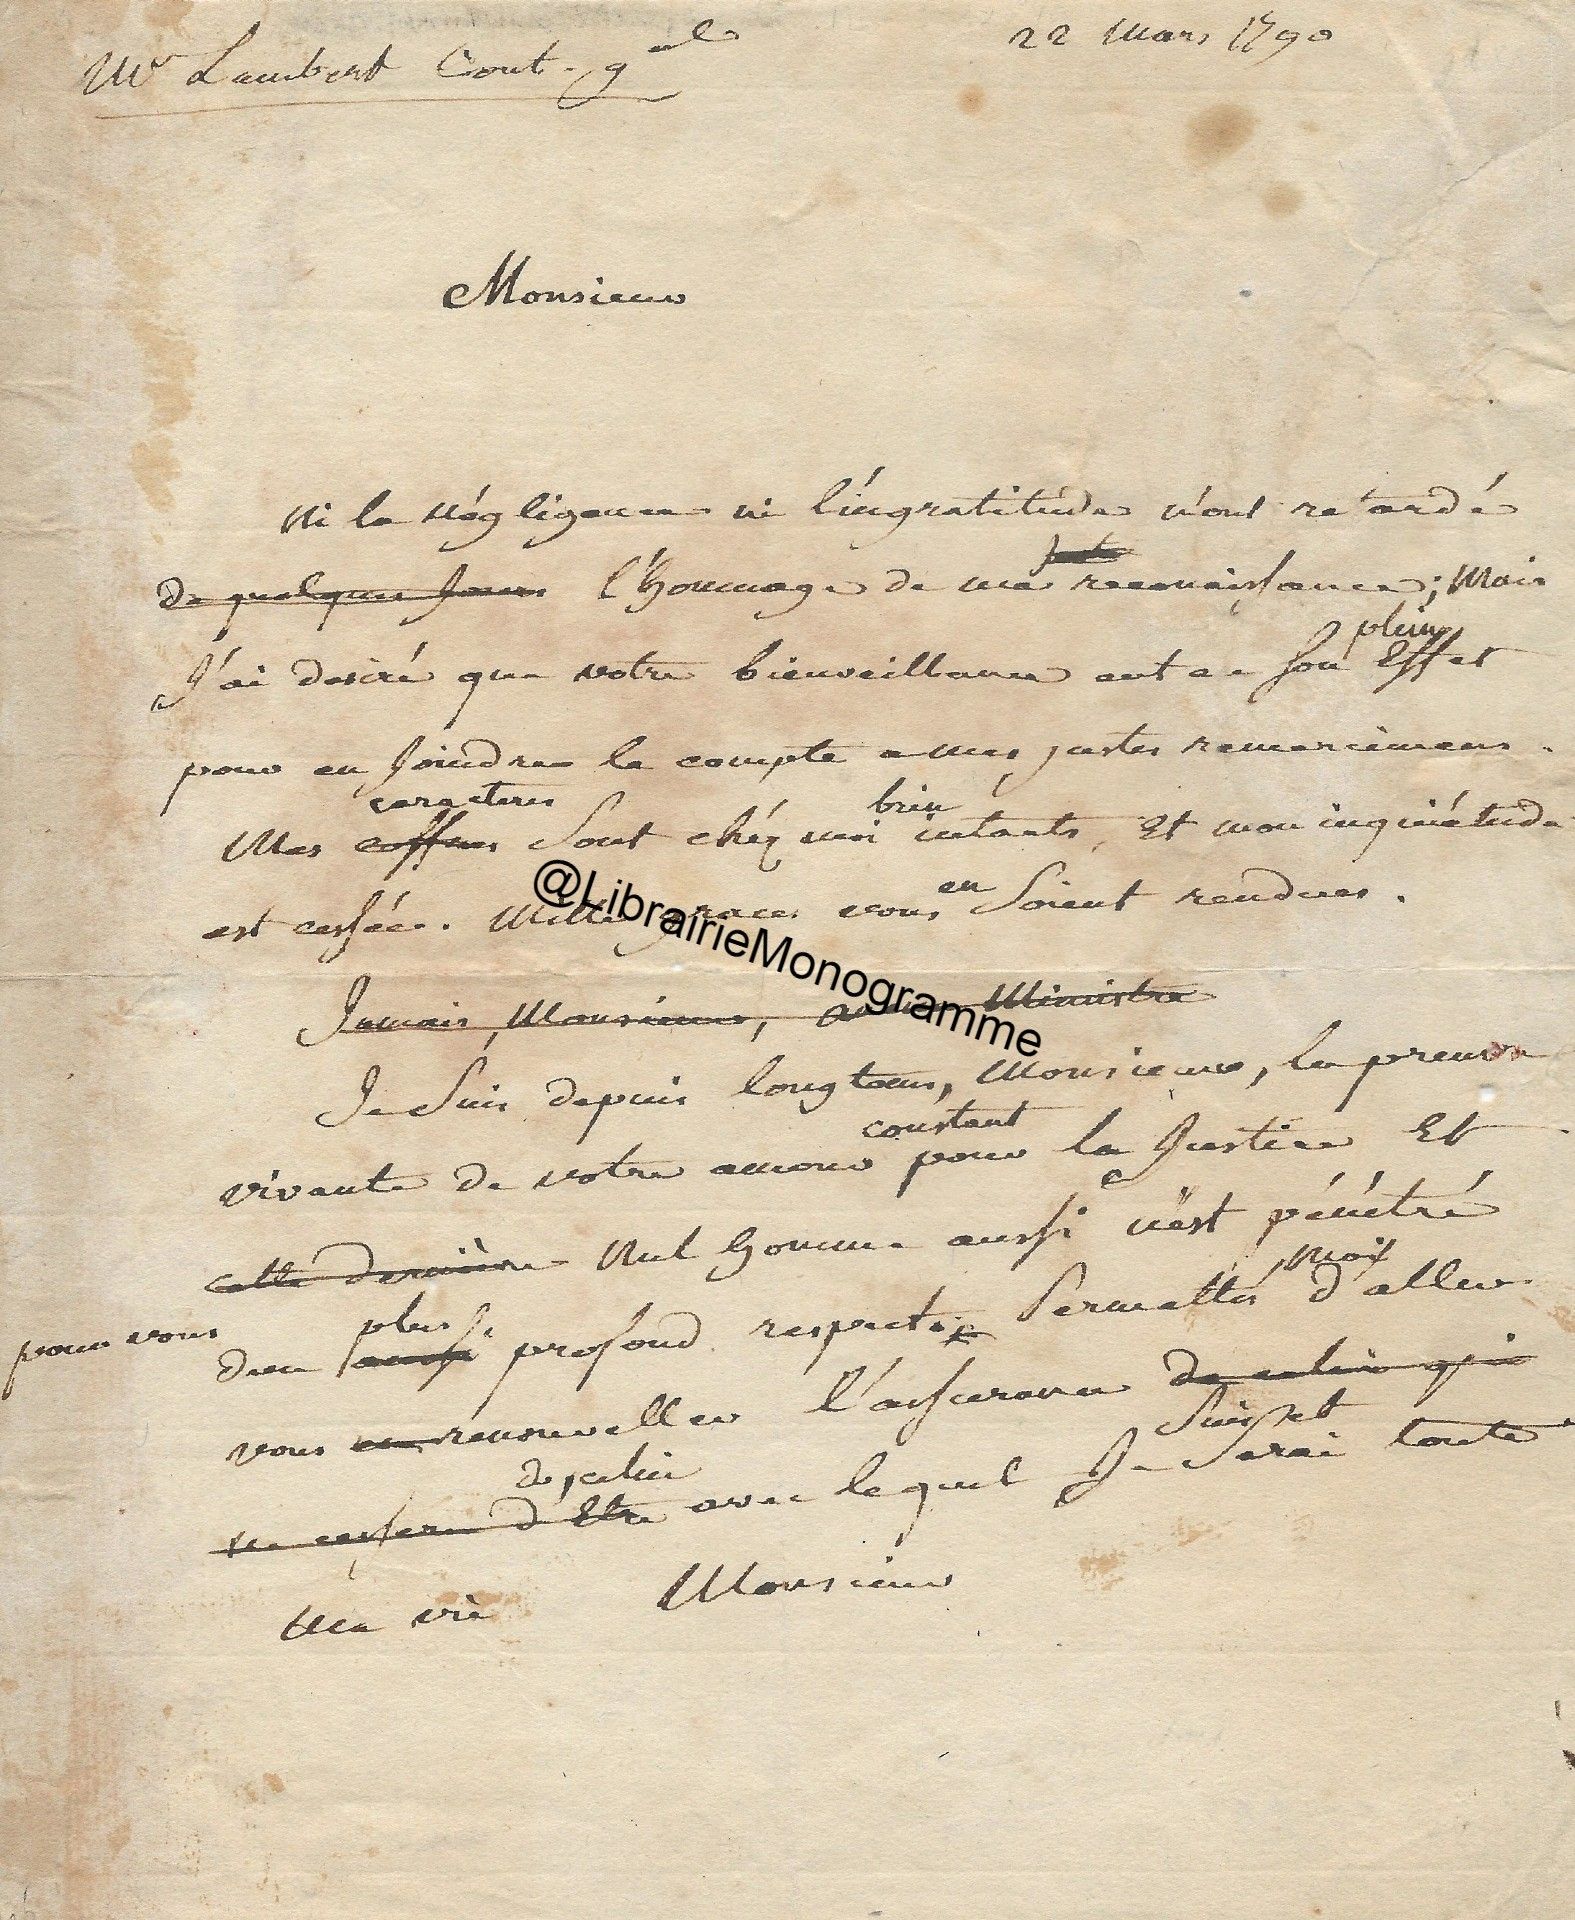 Mr Lambert Cont. gal
22 Mars 1790
Monsieur
Ni la négligence ni l'ingratitude n'ont retardé
de quelques jours l'hommage de ma juste reconnaissance; Mais
J'ai desiré que votre bienveillance eut eu son plein Effet
pour en joindre le compte a mes justes remercimens.
caracteres bien
Mes coffres sont chéz moi intants, Et mon inquiétude
en
est cessée. Mille graces vous soient rendues.
@LibrairieMonogramme
Jamais, Monsieur, Ministre
Je suis depuis longtems, Monsieur, la preuve
constant
vivante de votre amour pour la Justice Et
cette derniere Nul homme aussi n'est pénétré
pour vous plus Moi
d'un aussi profond respect. Permettés d'aller
vous en renouveller l'assurance de celui qui
de celui Sujet
ne cessera d'Etre avec lequel Je serai toute
ma vie Monsieur